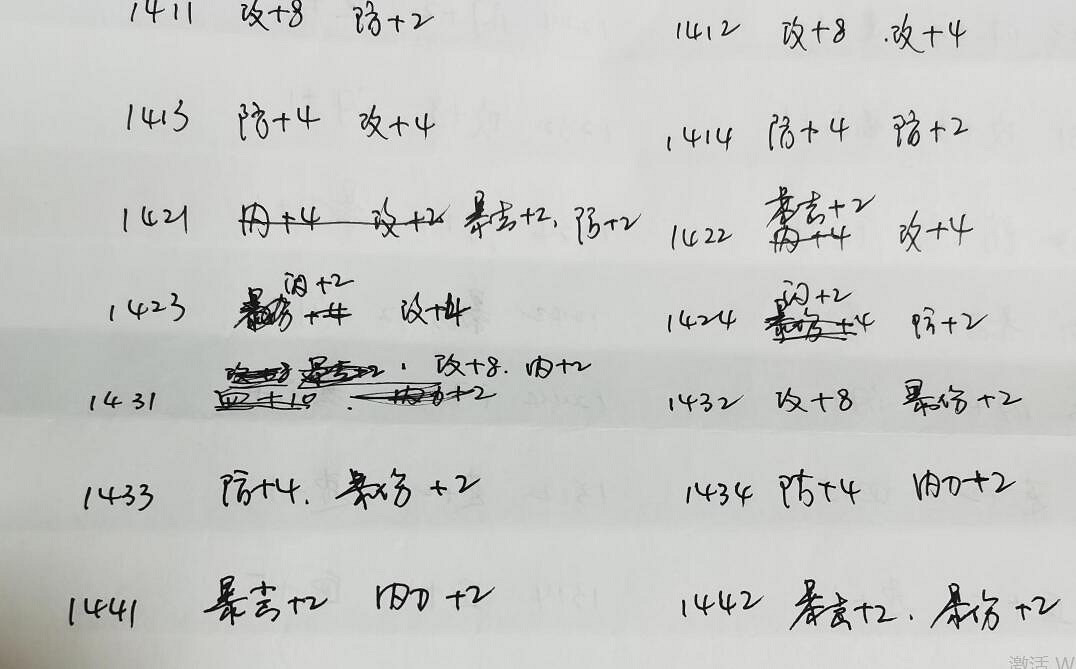 1411 攻+8 防+2 1412 攻+8 .攻+4
1413 防+4 攻+4 1414 防+4 防+2
暴击+2
1421 内+4 攻+2 暴击+2, 防+2 1422 内+4 攻+4
闪+2 闪+2
1423 暴伤+4 攻+4 1424 暴伤+4 防+2
攻+8 暴击+2 . 攻+8. 内+2
1431 血+10 . 内力+2 1432 攻+8 暴伤+2
1433 防+4. 暴伤+2 1434 防+4 内力+2
1441 暴击+2 内力+2 1442 暴击+2. 暴伤+2
激活 W